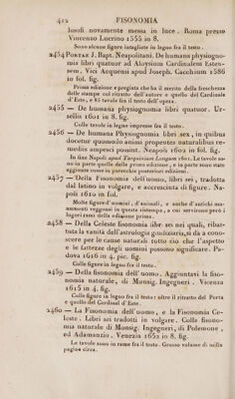 412 FISONOMIA
losofi novamente messa in luce. Roma presso
Vincenzo Lucrino 1555 in 8.
Sono alcune figure intagliate in legno fra il testo.
2454 PORTAE J. Bapt. Neapolitani. De humana physiogno-
mia libri quatuor ad Aloysium Cardinalem Esten-
sem. Vici Aequensis apud Joseph. Cacchium 1586
in fol. fig.
Prima edizione e pregiata che ha il merito della freschezza
delle stampe col ritratto dell' autore e quello del Cardinal
d' Este, e 85 tavole fra il testo dell' opera.
2455 — De humana physiognomia libri quatuor. Ur-
sellis 1601 in 8. fig.
Colle tavole in legno impresse fra il testo.
2456 — De humana Physiognomia libri sex, in quibus
docetur quomodo animi propensiones naturalibus re-
mediis compesci possint. Neapoli 1602 in fol. fig.
In fine Napoli apud Tarquinium Longum 1601. Le tavole so-
no in parte quelle della prima edizione, e in parte sono state
aggiunte come in parecchie posteriori edizioni.
2457 — Della Fisonomia dell'uomo, libri sei, tradotta
dal latino in volgare, e accresciuta di figure. Na-
poli 1610 in fol.
Molte figure d'uomini, d'animali, e anche d'antichi mo-
numenti veggonsi in questa ristampa, a cui servirono però i
legni usati della edizione prima.
2458 — Della Celeste fisonomia libr. sei nei quali, ribut-
tata la vanità dell'astrologia giudiziaria, si dà a cono-
scere per le cause naturali tutto ciò che l'aspetto
e le fattezze degli uomini possono significare. Pa-
dova 1616 in 4. pic. fig.
Colle figure in legno fra il testo.
2459 — Della fisonomia dell'uomo. Aggiuntavi la fiso-
nomia naturale, di Monsig. Ingegneri. Vicenza
1615 in 4. fig.
Colle figure in legno fra il testo: oltre il ritratto del Porta
e quello del Cardinal d'Este.
2460 — La Fisonomia dell'uomo, e la Fisonomia Ce-
leste. Libri sei tradotti in volgare. Colle fisono-
mia naturale di Monsig. Ingegneri, di Polemone,
ed Adamanzio. Venezia 1652 in 8. fig.
Le tavole sono in rame fra il testo. Grosso volume di mille
pagine circa.